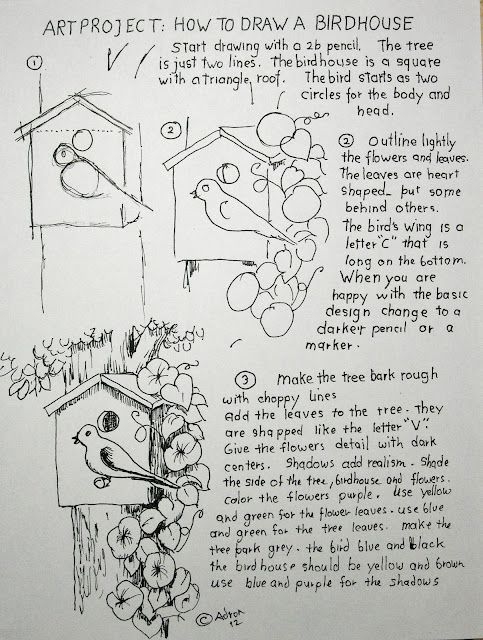 ART PROJECT: HOW TO DRAW A BIRDHOUSE
Start drawing with a 2b pencil. The tree
is just two lines. The birdhouse is a square
with a triangle roof. The bird starts as two
circles for the body and
head.
1
2
2 Outline lightly
the flowers and leaves.
The leaves are heart
shaped_ but some
behind others.
The bird's wing is a
letter "C" that is
long on the bottom.
When you are
happy with the basic
design change to a
darker pencil or a
marker.
3 make the tree bark rough
with choppy lines
Add the leaves to the tree. They
are shapped like the letter "V".
Give the flowers detail with dark
centers. Shadows add realism. Shade
the side of the tree, birdhouse and flowers.
Color the flowers purple. Use yellow
and green for the flower leaves. use blue
and green for the tree leaves. make the
tree bark grey. the bird blue and black
the birdhouse should be yellow and brown
use blue and purple for the shadows
© Adron
12